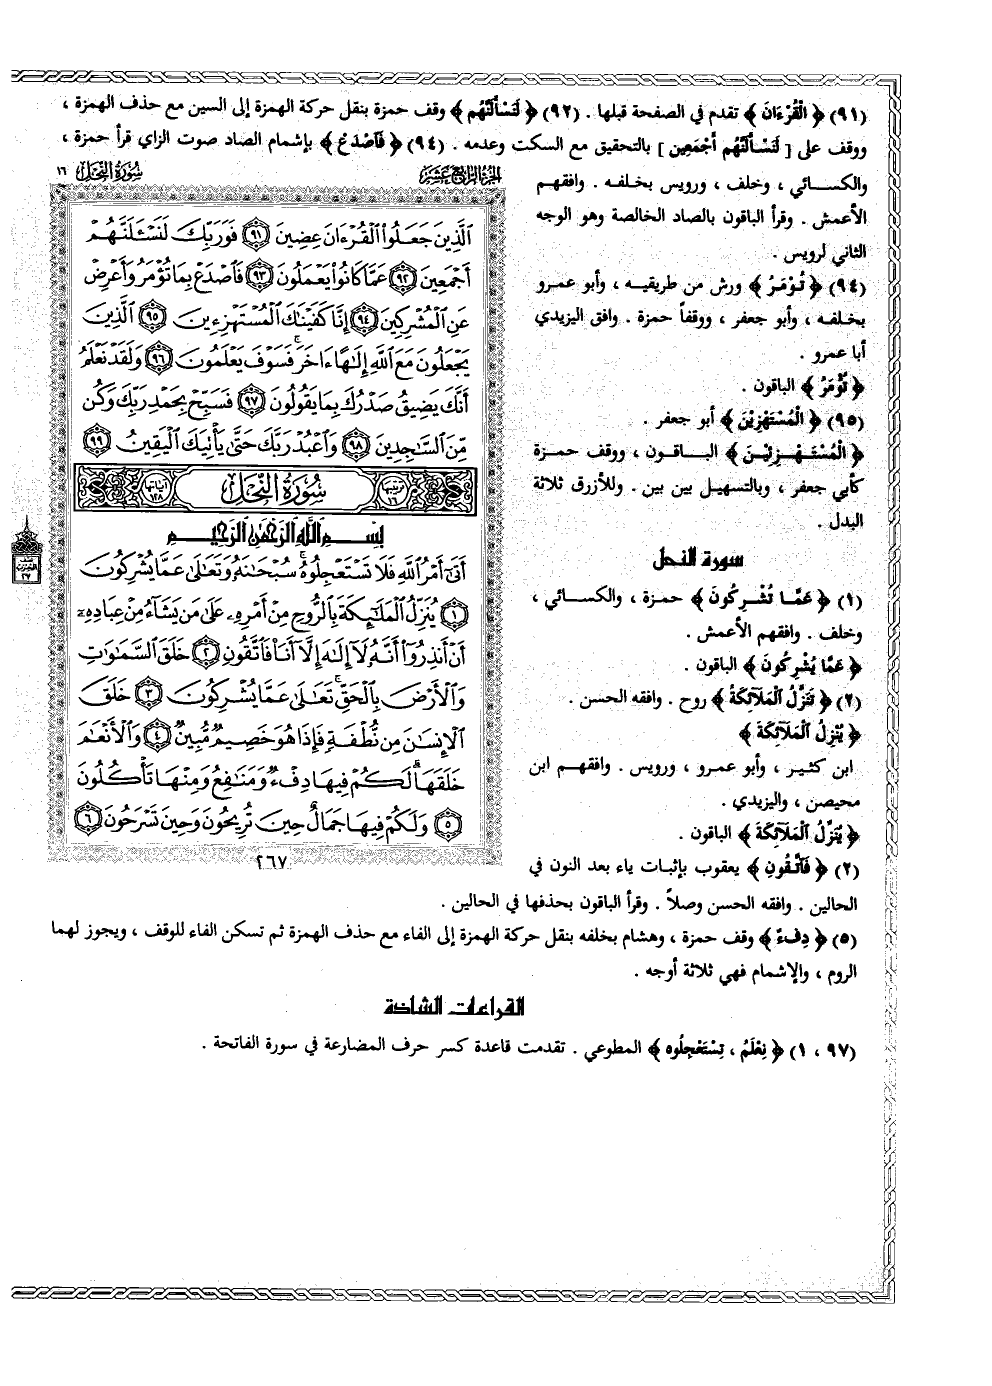 (٩١) ﴿ الْقُرْءَانَ ﴾ تقدم في الصفحة قبلها . (٩٢) ﴿ لَنَسْأَلَنَّهُم ﴾ وقف حمزة بنقل حركة الهمزة إلى السين مع حذف الهمزة ،
ووقف على [ لَنَسْأَلَنَّهُم أَجْمَعِين ] بالتحقيق مع السكت وعدمه . (٩٤) ﴿ فَاصْدَعْ ﴾ بإشمام الصاد صوت الزاي قرأ حمزة ،
والكسائي ، وخلف ، ورويس بخلفه . وافقهم
الأعمش . وقرأ الباقون بالصاد الخالصة وهو الوجه
الثاني لرويس .
(٩٤) ﴿ تُوْمَرُ ﴾ ورش من طريقيه ، وأبو عمرو
بخلفه ، وأبو جعفر ، ووقفاً حمزة . وافق اليزيدي
أبا عمرو .
﴿ تُؤْمَرُ ﴾ الباقون .
(٩٥) ﴿ الْمُسْتَهْزِيْنَ ﴾ أبو جعفر .
﴿ الْمُسْتَهْزِئِيْنَ ﴾ الباقون ، ووقف حمزة
كأبي جعفر ، وبالتسهيل بين بين . وللأزرق ثلاثة
البدل .
سورة النحل
(١) ﴿ عَمَّا تُشْرِكُونَ ﴾ حمزة ، والكسائي ،
وخلف . وافقهم الأعمش .
﴿ عَمَّا يُشْرِكُونَ ﴾ الباقون .
(٢) ﴿ تَنَزَّلُ الْمَلَآئِكَةُ ﴾ روح . وافقه الحسن .
﴿ يُنْزِلُ الْمَلَآئِكَةَ ﴾
ابن كثير ، وأبو عمرو ، ورويس . وافقهم ابن
محيصن ، واليزيدي .
﴿ يُنَزِّلُ الْمَلَآئِكَةَ ﴾ الباقون .
(٢) ﴿ فَاتَّقُونِ ﴾ يعقوب بإثبات ياء بعد النون في
الحالين . وافقه الحسن وصلاً . وقرأ الباقون بحذفها في الحالين .
(٥) ﴿ دِفْءٌ ﴾ وقف حمزة ، وهشام بخلفه بنقل حركة الهمزة إلى الفاء مع حذف الهمزة ثم تسكن الفاء للوقف ، ويجوز لهما
الروم ، والإشمام فهي ثلاثة أوجه .
القراءات الشاذة
(٩٧ ، ١) ﴿ نِعْلَمُ ، تِسْتَعْجِلُوه ﴾ المطوعي . تقدمت قاعدة كسر حرف المضارعة في سورة الفاتحة .
الجزء الرابع عشر
سُورَةُ النَّحْل ١٦
الَّذِينَ جَعَلُوا الْقُرْءَانَ عِضِينَ ٩١ فَوَرَبِّكَ لَنَسْـَٔلَنَّهُمْ
أَجْمَعِينَ ٩٢ عَمَّا كَانُوا يَعْمَلُونَ ٩٣ فَاصْدَعْ بِمَا تُؤْمَرُ وَأَعْرِضْ
عَنِ الْمُشْرِكِينَ ٩٤ إِنَّا كَفَيْنَاكَ الْمُسْتَهْزِءِينَ ٩٥ الَّذِينَ
يَجْعَلُونَ مَعَ اللَّهِ إِلَٰهًا ءَاخَرَ ۚ فَسَوْفَ يَعْلَمُونَ ٩٦ وَلَقَدْ نَعْلَمُ
أَنَّكَ يَضِيقُ صَدْرُكَ بِمَا يَقُولُونَ ٩٧ فَسَبِّحْ بِحَمْدِ رَبِّكَ وَكُن
مِّنَ السَّاجِدِينَ ٩٨ وَاعْبُدْ رَبَّكَ حَتَّىٰ يَأْتِيَكَ الْيَقِينُ ٩٩
ترتيبها ١٦ سُورَةُ النَّحْلِ آياتها ١٢٨
بِسْمِ اللَّهِ الرَّحْمَٰنِ الرَّحِيمِ
أَتَىٰ أَمْرُ اللَّهِ فَلَا تَسْتَعْجِلُوهُ ۚ سُبْحَانَهُ وَتَعَالَىٰ عَمَّا يُشْرِكُونَ
١ يُنَزِّلُ الْمَلَٰئِكَةَ بِالرُّوحِ مِنْ أَمْرِهِ عَلَىٰ مَن يَشَاءُ مِنْ عِبَادِهِ
أَنْ أَنذِرُوا أَنَّهُ لَا إِلَٰهَ إِلَّا أَنَا فَاتَّقُونِ ٢ خَلَقَ السَّمَاوَاتِ
وَالْأَرْضَ بِالْحَقِّ ۚ تَعَالَىٰ عَمَّا يُشْرِكُونَ ٣ خَلَقَ
الْإِنسَانَ مِن نُّطْفَةٍ فَإِذَا هُوَ خَصِيمٌ مُّبِينٌ ٤ وَالْأَنْعَامَ
خَلَقَهَا ۗ لَكُمْ فِيهَا دِفْءٌ وَمَنَافِعُ وَمِنْهَا تَأْكُلُونَ
٥ وَلَكُمْ فِيهَا جَمَالٌ حِينَ تُرِيحُونَ وَحِينَ تَسْرَحُونَ ٦
٢٦٧